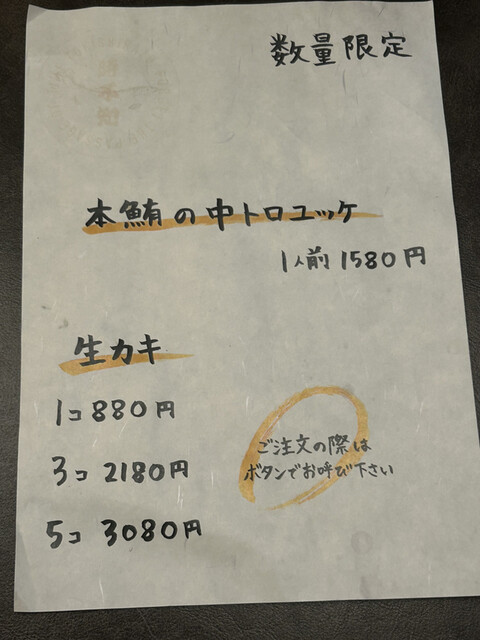 数量限定
本鮪の中トロユッケ
1人前 1580円
生カキ
1コ 880円
3コ 2180円
5コ 3080円
ご注文の際は
ボタンでお呼び下さい